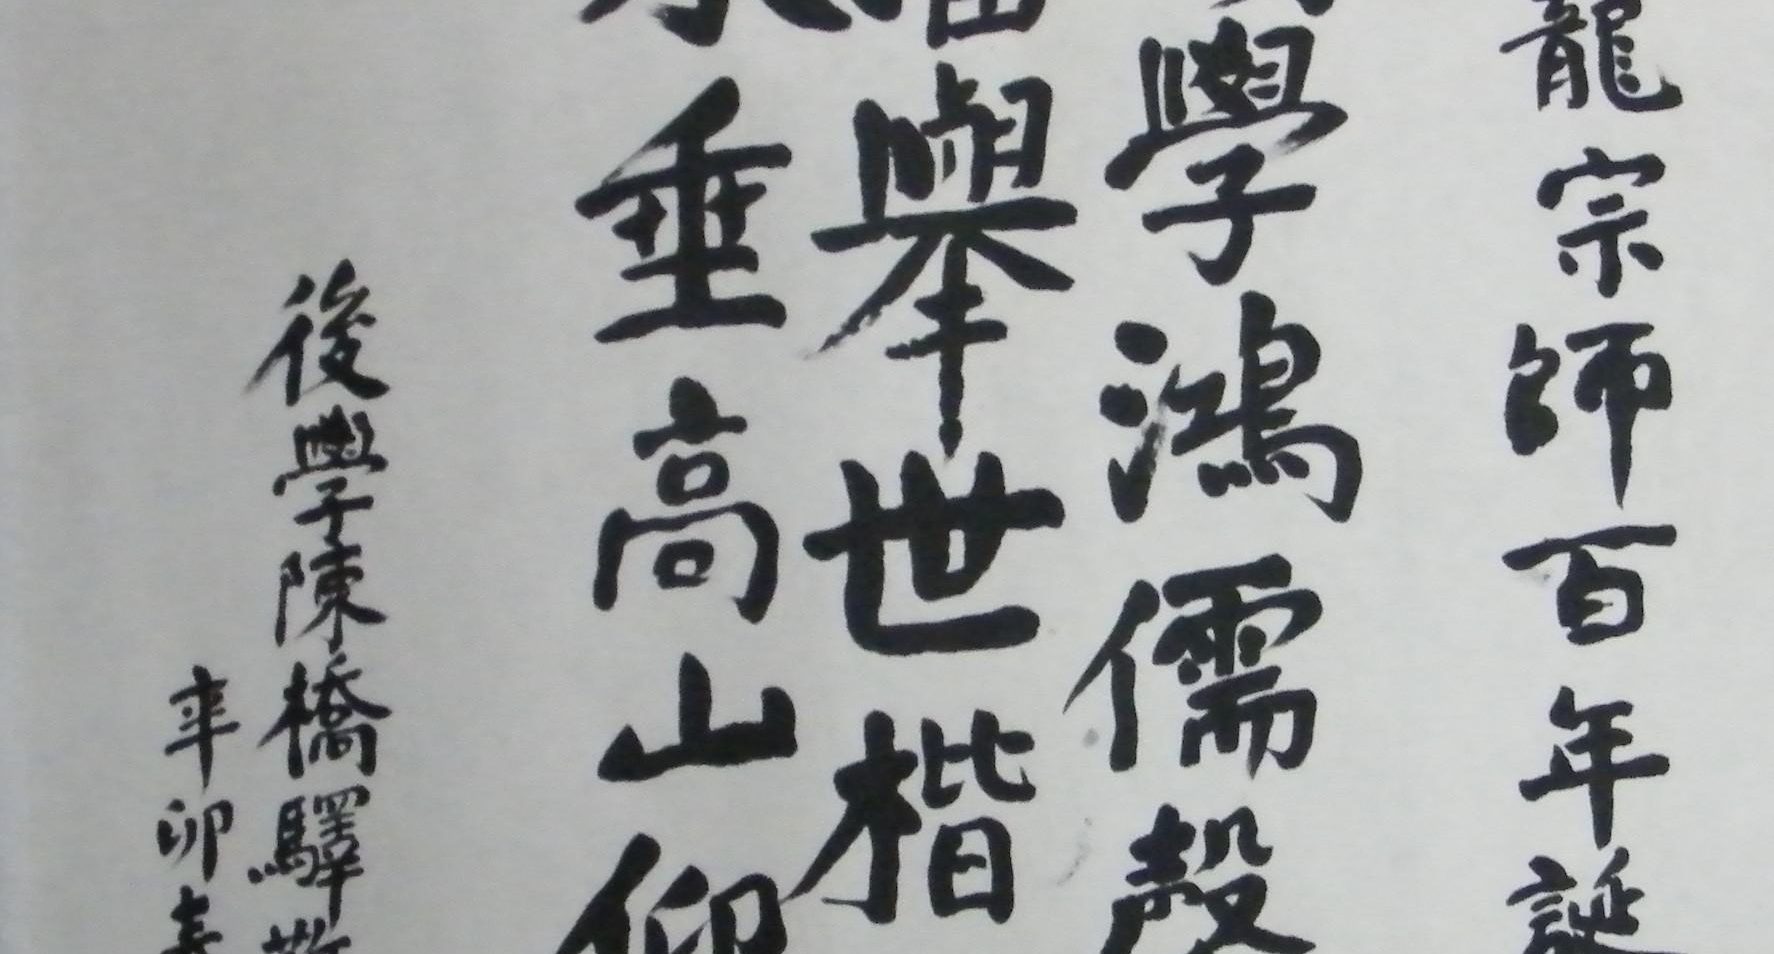 龍宗師百年誕
學鴻儒
舉世楷
垂高山仰
後學陳橋驛敬
辛卯春